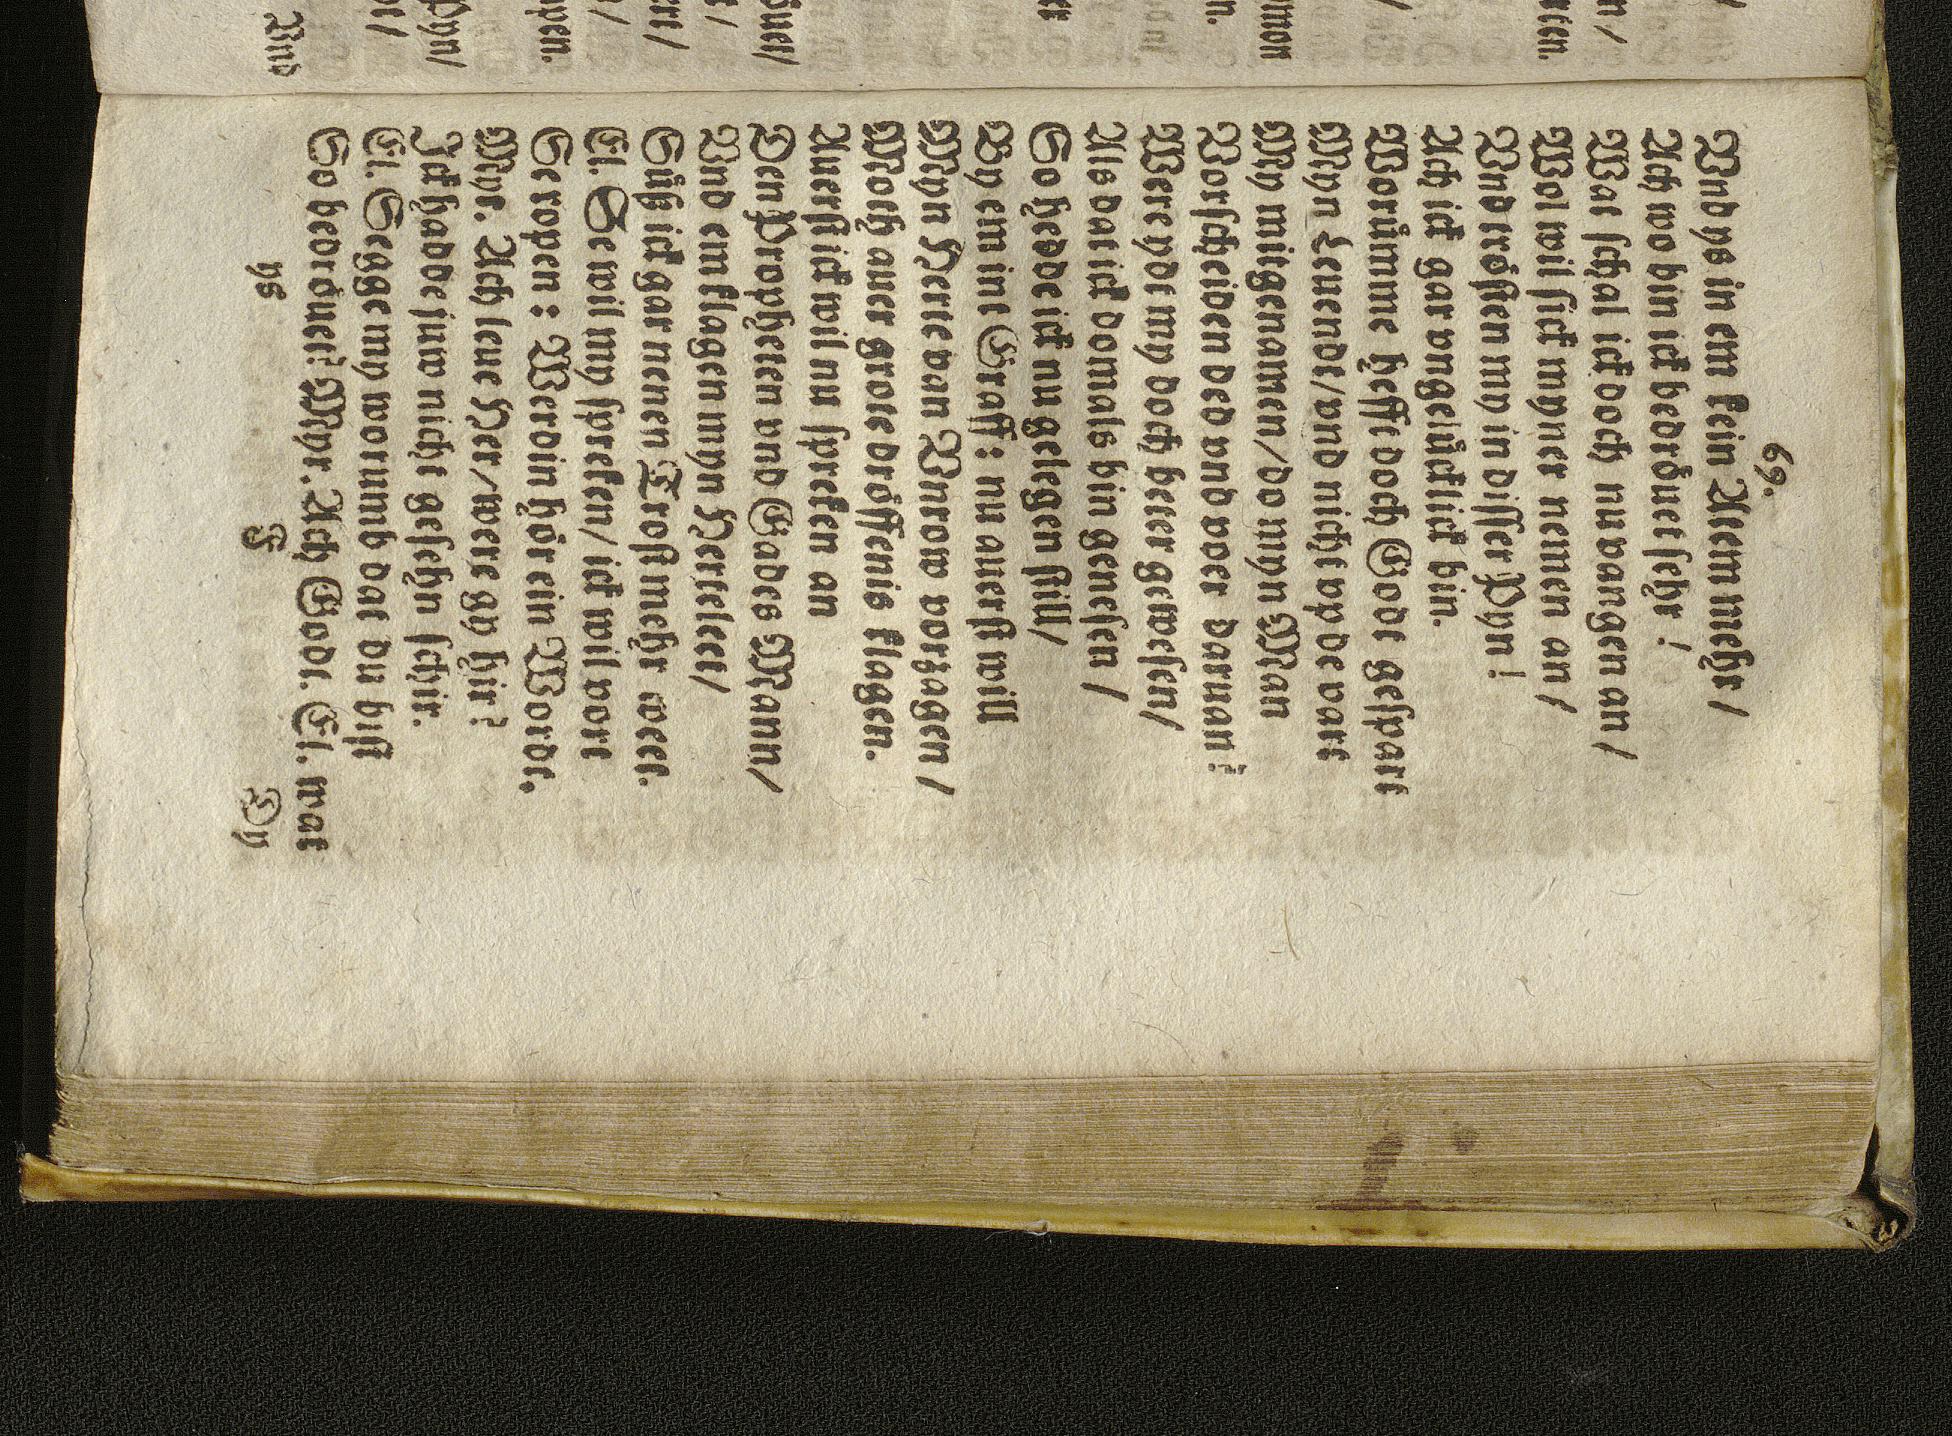 69.
Vnd ys in em kein Atem mehr /
Ach wo bin ick bedröuet sehr !
Wat schal ick doch nu vangen an /
Wol wil sick myner nemen an /
Vnd trösten my in disser Pyn !
Ach ick gar vngelücklick bin.
Worümme hefft doch Godt gespart
Myn Leuendt / vnd nicht vp de vart
My mitgenamen / do myn Man
Vorscheiden ded vnd voer daruan?
Were ydt my doch beter gewesen /
Als dat ick domals bin genesen /
So hedde ick nu gelegen still /
By em int Graff : nu auerst will
Myn Herte van Vnrow vorzagen /
Moth auer grote dröffenis klagen.
Auerst ick wil nu spreken an
Den Propheten vnd Gades Mann /
Vnd em klagen myn Herteleet /
Süß ick gar nenen Trost mehr weet.
El. Se wil my spreken / ick wil vort
Se ropen : Werdin hör ein Wordt.
Myr. Ach leue Her / were gy hir?
Ick hadde juw nicht gesehn schir.
El. Segge my worumb dat du bist
So bedröuet? Myr. Ach Godt. El. wat
ys
E
Dy
Vnd